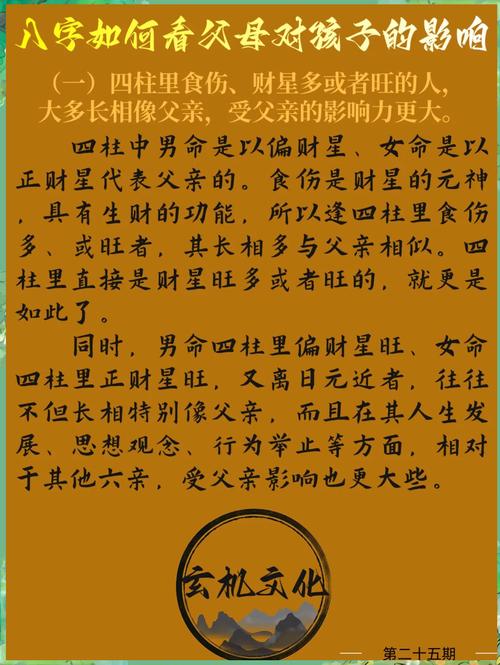 八字如何看父母对孩子的影响
（一）四柱里食伤、财星多或者旺的人，
大多长相像父亲，受父亲的影响力更大。
四柱中男命是以偏财星、女命是以
正财星代表父亲的。食伤是财星的元神
，具有生财的功能，所以逢四柱里食伤
多、或旺者，其长相多与父亲相似。四
柱里直接是财星旺多或者旺的，就更是
如此了。
同时，男命四柱里偏财星旺、女命
四柱里正财星旺，又离日元近者，往往
不但长相特别像父亲，而且在其人生发
展、思想观念、行为举止等方面，相对
于其他六亲，受父亲影响也更大些。
玄机文化
第二十五期